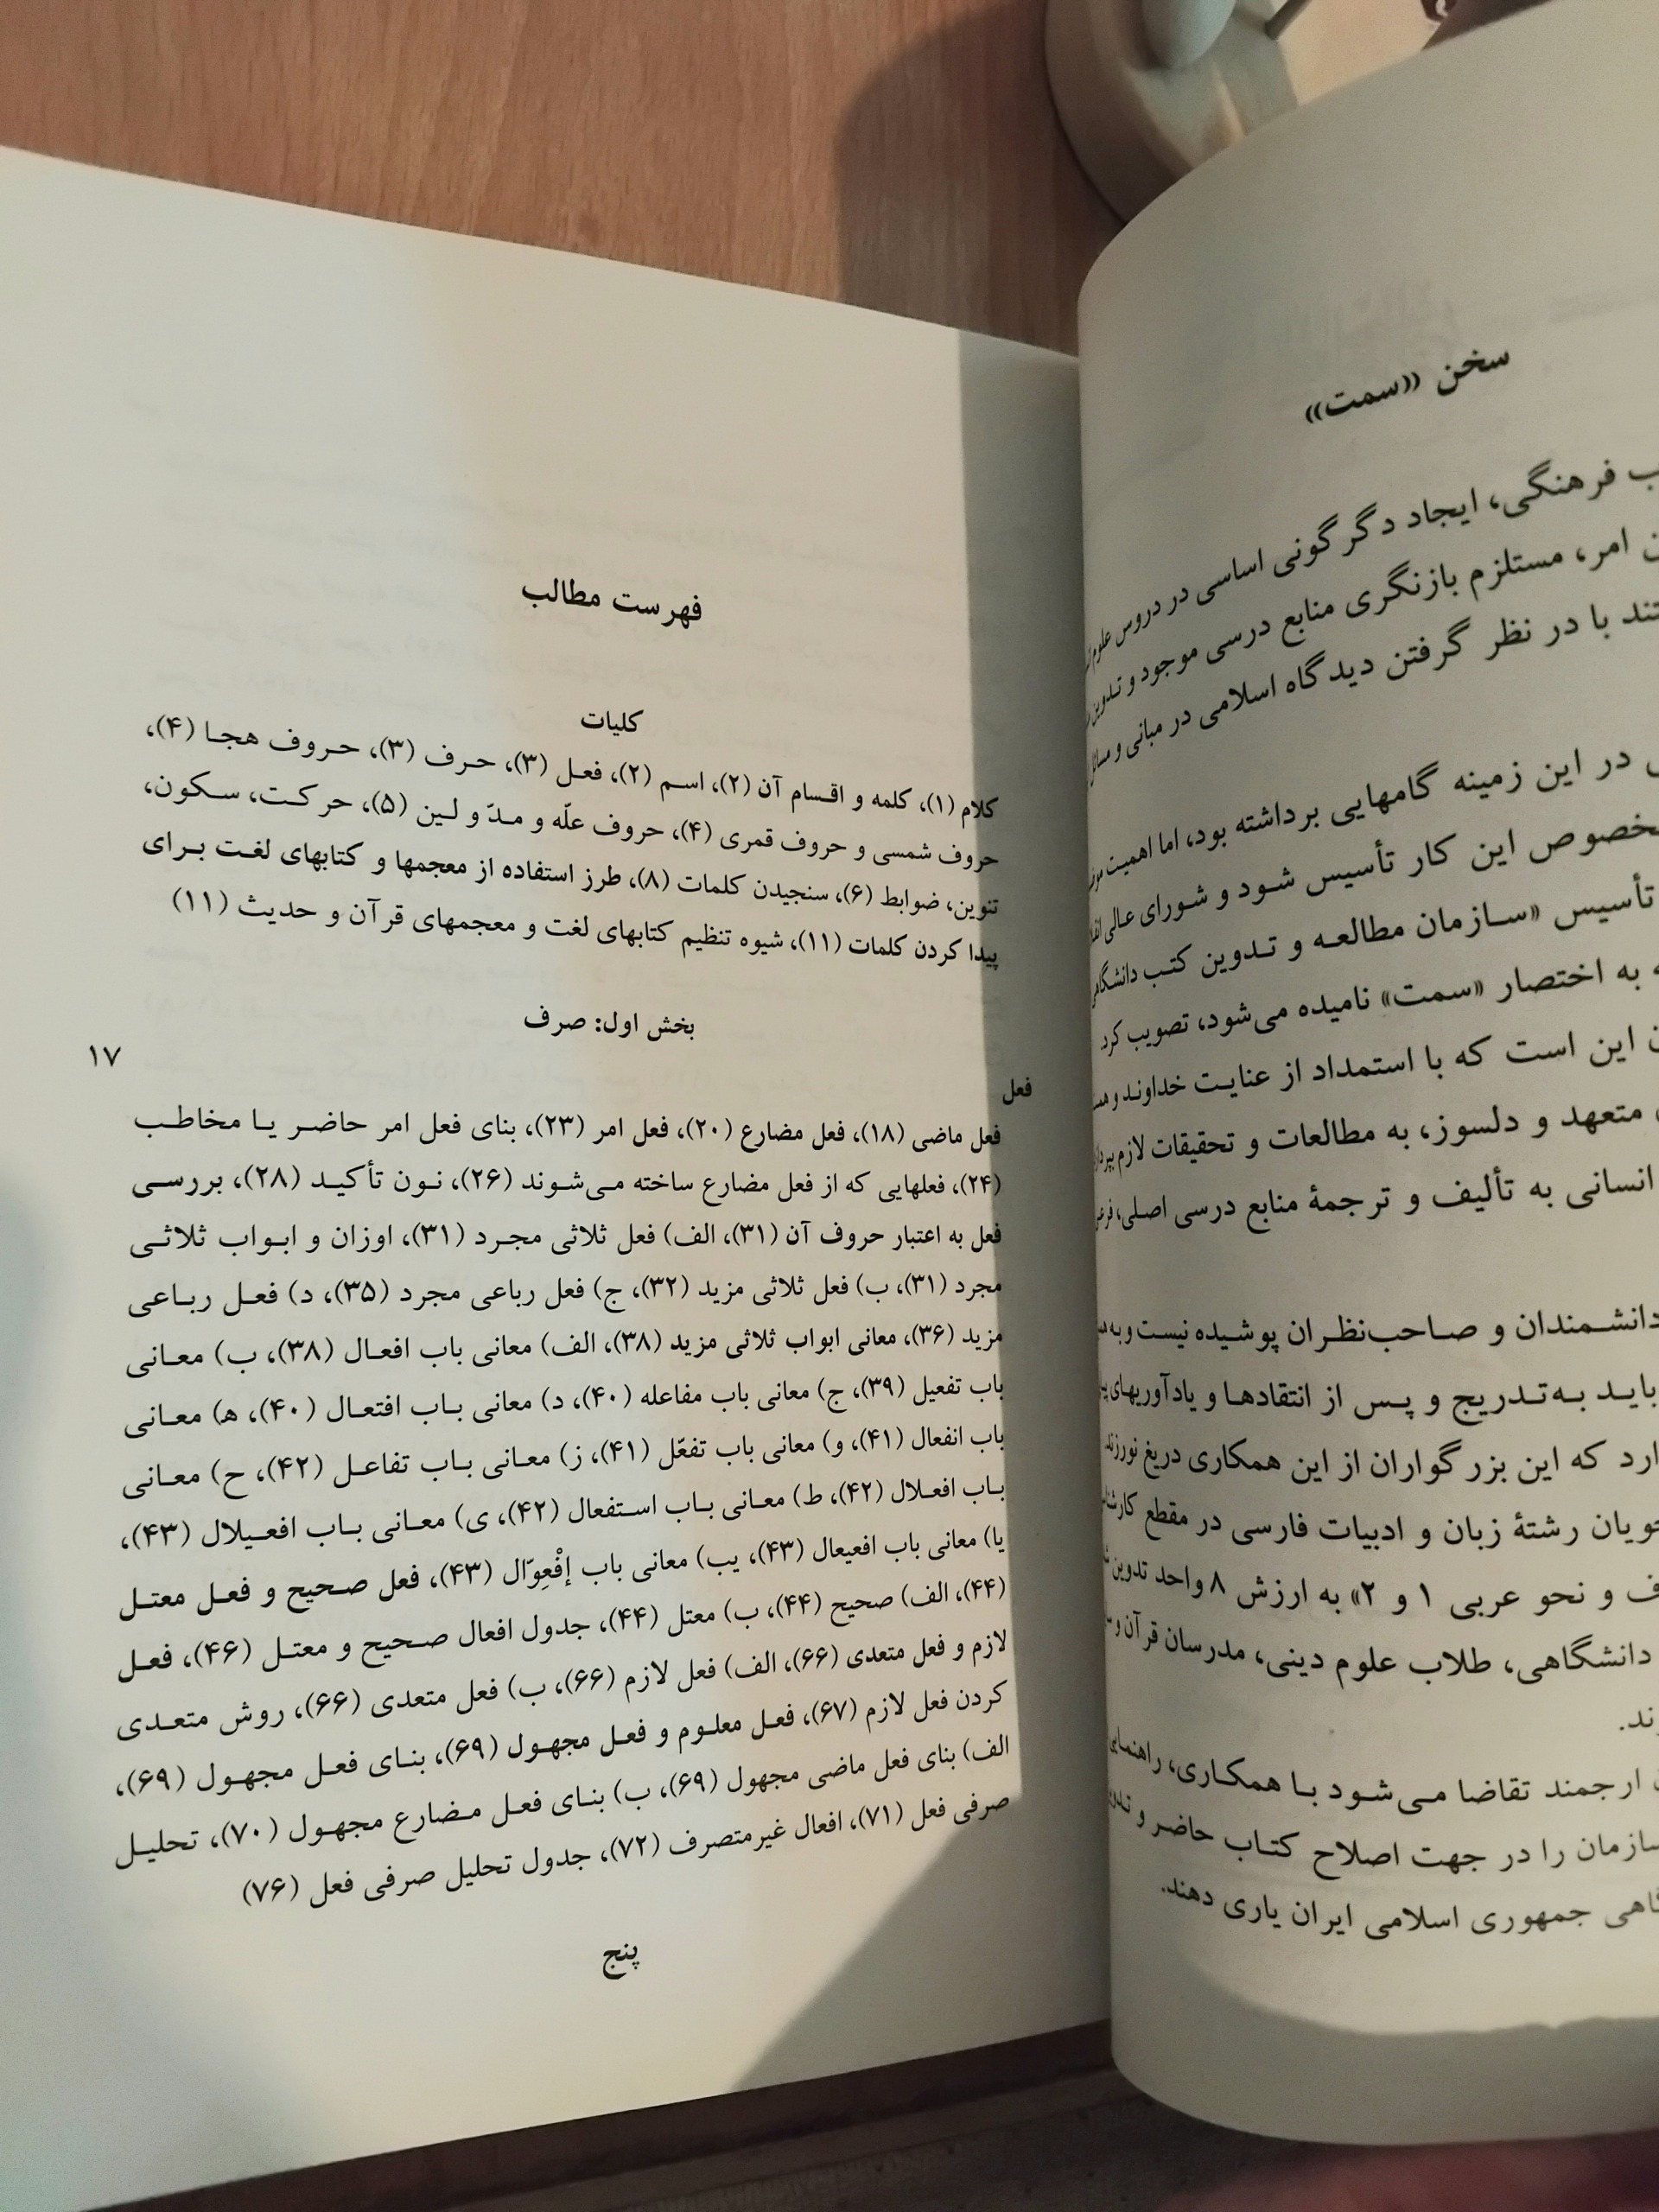 سخن «سمت»
فرهنگی، ایجاد دگرگونی اساسی در دروس علوم
امر، مستلزم بازنگری منابع درسی موجود و تدوین
با در نظر گرفتن دیدگاه اسلامی در مبانی و مسائل
در این زمینه گامهایی برداشته بود، اما اهمیت
این کار تأسیس شود و شورای عالی
تأسیس «سازمان مطالعه و تدوین کتب
به اختصار «سمت» نامیده می‌شود، تصویب کرد.
این است که با استمداد از عنایت خداوند و
متعهد و دلسوز، به مطالعات و تحقیقات لازم
انسانی به تألیف و ترجمهٔ منابع درسی اصلی،
دانشمندان و صاحب‌نظران پوشیده نیست و به
باید به‌تدریج و پس از انتقادها و یادآوریهای
که این بزرگواران از این همکاری دریغ نورزند.
رشتهٔ زبان و ادبیات فارسی در مقطع
و نحو عربی ۱ و ۲» به ارزش ۸ واحد تدوین
دانشگاهی، طلاب علوم دینی، مدرسان قرآن و
ارجمند تقاضا می‌شود با همکاری،
را در جهت اصلاح کتاب حاضر و
جمهوری اسلامی ایران یاری دهند.
فهرست مطالب
کلیات
کلام (۱)، کلمه و اقسام آن (۲)، اسم (۲)، فعل (۳)، حرف (۳)، حروف هجا (۴)،
حروف شمسی و حروف قمری (۴)، حروف علّه و مدّ و لین (۵)، حرکت، سکون،
تنوین، ضوابط (۶)، سنجیدن کلمات (۸)، طرز استفاده از معجمها و کتابهای لغت برای
پیدا کردن کلمات (۱۱)، شیوه تنظیم کتابهای لغت و معجمهای قرآن و حدیث (۱۱)
بخش اول: صرف
فعل ۱۷
فعل ماضی (۱۸)، فعل مضارع (۲۰)، فعل امر (۲۳)، بنای فعل امر حاضر یا مخاطب
(۲۴)، فعلهایی که از فعل مضارع ساخته می‌شوند (۲۶)، نون تأکید (۲۸)، بررسی
فعل به اعتبار حروف آن (۳۱)، الف) فعل ثلاثی مجرد (۳۱)، اوزان و ابواب ثلاثی
مجرد (۳۱)، ب) فعل ثلاثی مزید (۳۲)، ج) فعل رباعی مجرد (۳۵)، د) فعل رباعی
مزید (۳۶)، معانی ابواب ثلاثی مزید (۳۸)، الف) معانی باب افعال (۳۸)، ب) معانی
باب تفعیل (۳۹)، ج) معانی باب مفاعله (۴۰)، د) معانی باب افتعال (۴۰)، ه) معانی
باب انفعال (۴۱)، و) معانی باب تفعّل (۴۱)، ز) معانی باب تفاعل (۴۲)، ح) معانی
باب افعلال (۴۲)، ط) معانی باب استفعال (۴۲)، ی) معانی باب افعیلال (۴۳)،
یا) معانی باب افعیعال (۴۳)، یب) معانی باب إفْعِوّال (۴۳)، فعل صحیح و فعل معتل
(۴۴)، الف) صحیح (۴۴)، ب) معتل (۴۴)، جدول افعال صحیح و معتل (۴۶)، فعل
لازم و فعل متعدی (۶۶)، الف) فعل لازم (۶۶)، ب) فعل متعدی (۶۶)، روش متعدی
کردن فعل لازم (۶۷)، فعل معلوم و فعل مجهول (۶۹)، بنای فعل مجهول (۶۹)،
الف) بنای فعل ماضی مجهول (۶۹)، ب) بنای فعل مضارع مجهول (۷۰)، تحلیل
صرفی فعل (۷۱)، افعال غیرمتصرف (۷۲)، جدول تحلیل صرفی فعل (۷۶)
پنج